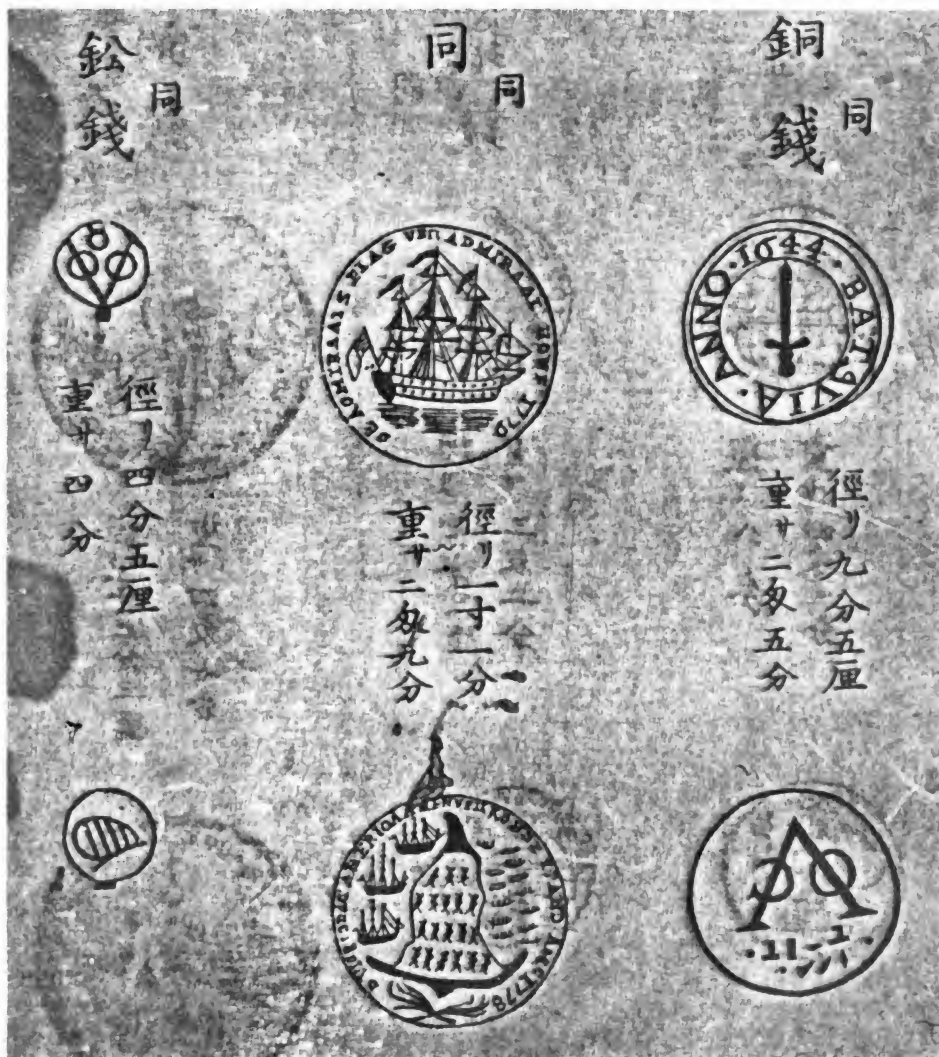 銅錢
同
ANNO · 1644 · BATAVIA ·
徑リ九分五厘
重サ二匁五分
同
同
DE ADMIRAALS FLAG VAN ADMIRAAL HOWE 1779
徑リ一寸一分
重サ二匁九分
1778
鈆錢
同
徑リ四分五厘
重サ四分